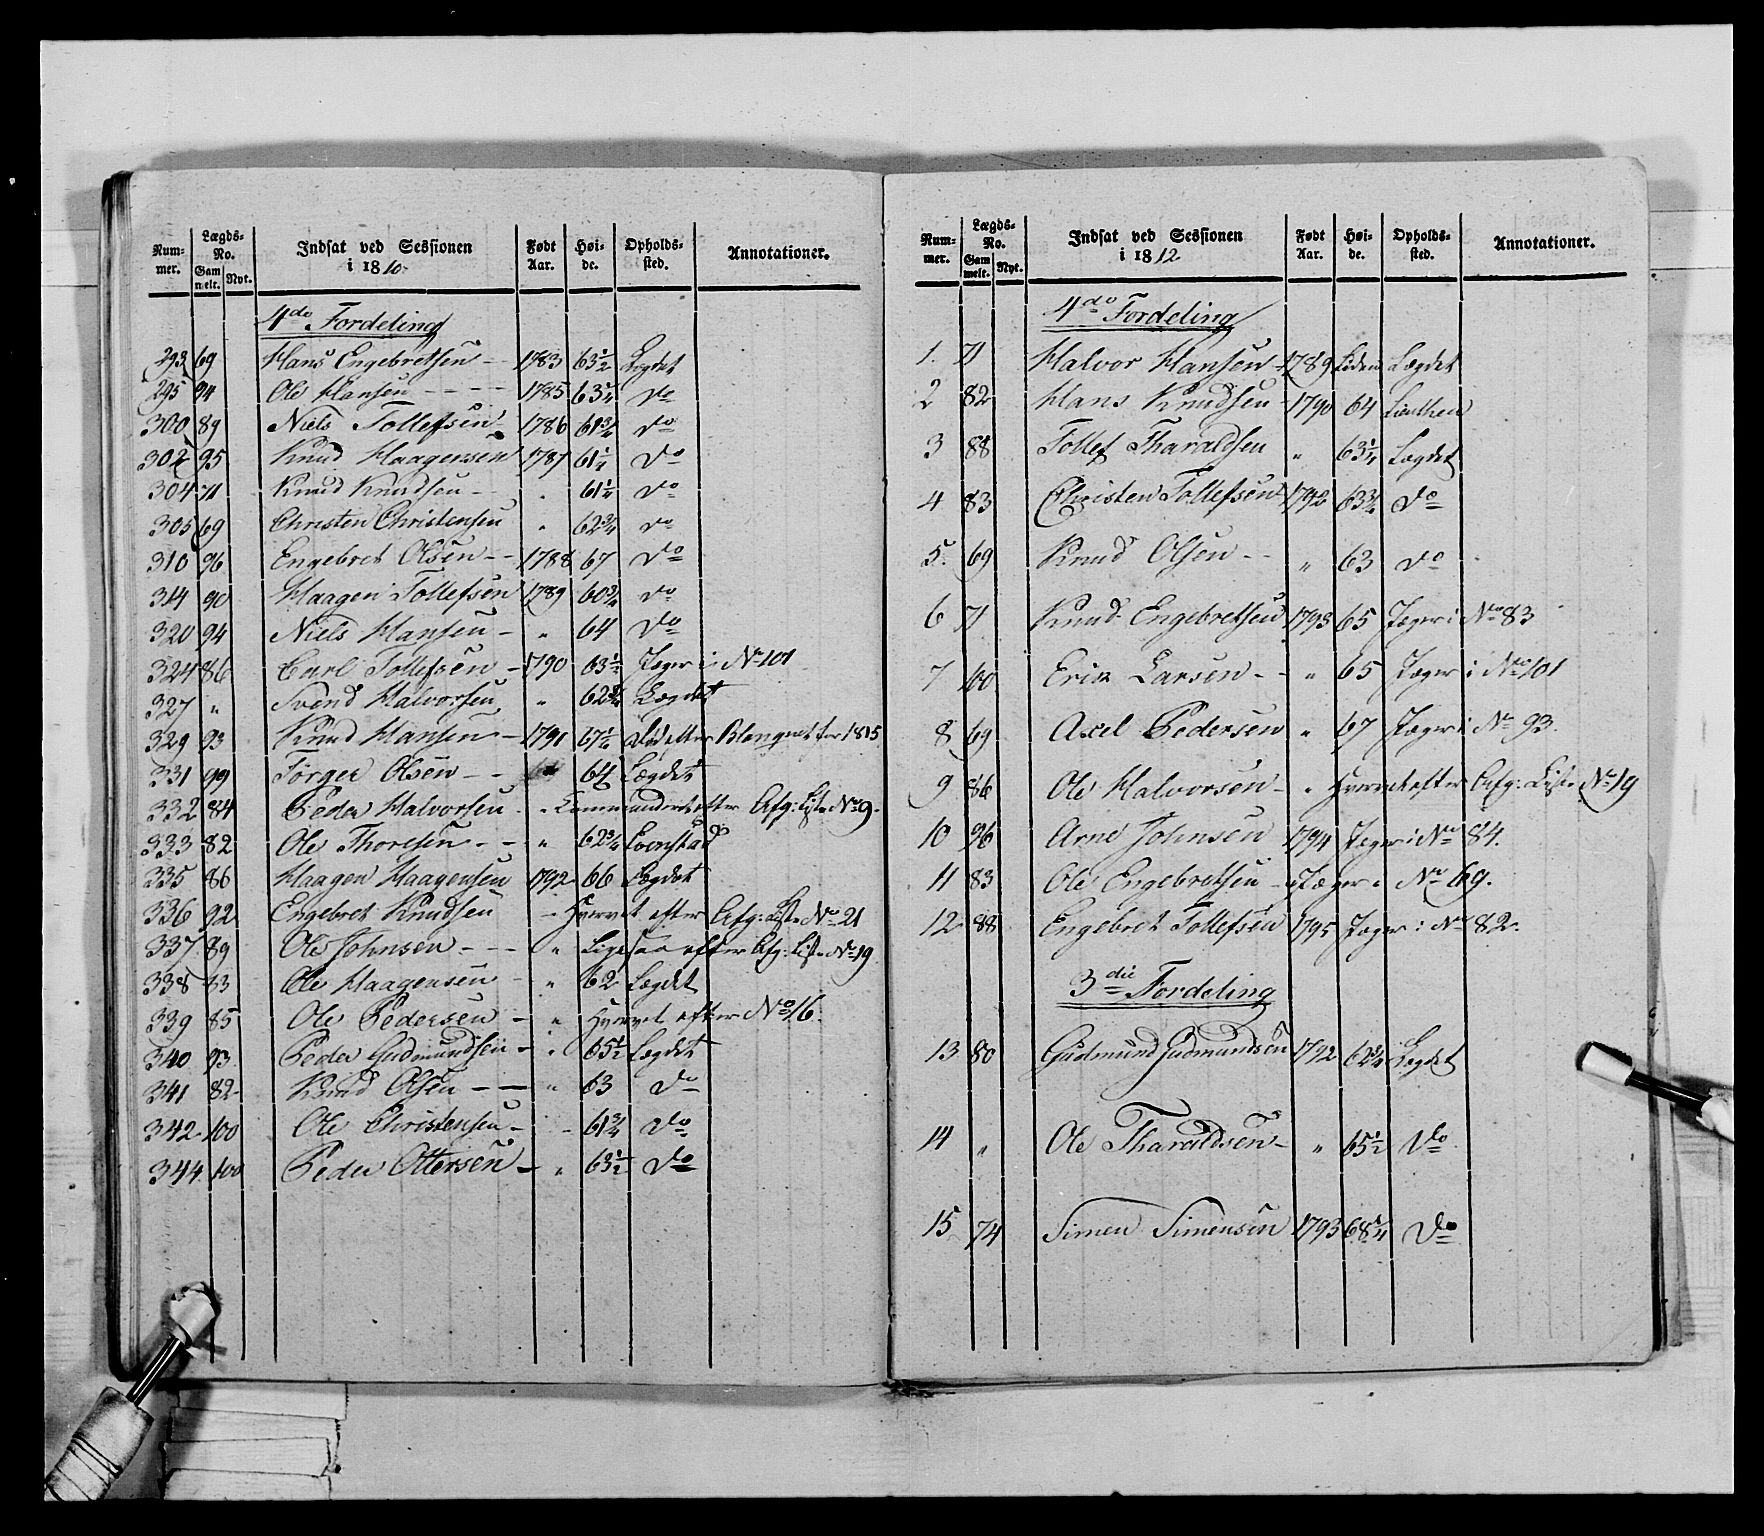 Num-
mer.
Lægds-
No.
Gam
melt. Nyt.
Indsat ved Sessionen
i 1810
Født
Aar.
Høi-
de.
Opholds-
sted.
Annotationer.
4de Fordeling
293 69 Hans Engebretsen - - 1783 63½ Lægdet
295 94 Ole Hansen - - - - 1785 63¼ do
300 89 Niels Tollefsen - 1786 61¾ do
302 95 Knud Haagensen 1787 61¼ do
304 71 Knud Knudsen - - " 61¼ do
305 69 Christen Christensen " 62¾ do
310 96 Engebret Olsen - - 1788 67 do
314 90 Haagen Tollefsen 1789 60¾ do
320 94 Niels Hansen - " 64 do
324 86 Carl Tollefsen - 1790 63½ Jæger i No 101
327 " Svend Halvorsen " 62¾ Lægdet
329 93 Knud Hansen - 1791 67¼ død efter Blanquet for 1815
331 99 Jørger Olsen - - " 64 Lægdet
332 84 Peder Halvorsen - " Commanderet efter Afg: Liste No 9.
333 82 Ole Thoresen - - " 62¾ Evenstad
335 86 Haagen Haagensen 1792 66 Lægdet
336 92 Engebret Knudsen - Hvervet efter Afg: Liste No 21
337 89 Ole Johnsen - - - " Ligesaa efter Afg: Liste No 19
338 83 Ole Haagensen - " 62 Lægdet
339 85 Ole Pedersen - " Hvervet efter No 16.
340 93 Peder Gudmundsen - " 65½ Lægdet
341 82 Knud Olsen - - " 63 do
342 100 Ole Christensen - - 61¾ do
344 100 Peder Ottersen - " 63½ do
Num-
mer.
Lægds-
No.
Gam
melt. Nyt.
Indsat ved Sessionen
i 1812
Født
Aar.
Høi-
de.
Opholds-
sted.
Annotationer.
4de Fordeling
1. 71 Halvor Hansen - 1789 Liden Lægdet
2 82 Hans Knudsen - 1790 64
3 88 Tollef Tharaldsen " 63¼ Lægdet
4 83 Christen Tollefsen 1792 63¾ do
5. 69 Knud Olsen - - " 63 do
6 71 Knud Engebretsen 1793 65 Jæger i No 83
7 100 Erik Larsen - - " 65 Jæger i No 101
8 69 Axel Pedersen " 67 Jæger i No 93.
9 86 Ole Halvorsen - " Hvervet efter Afg: Liste No 19
10 96 Arne Johnsen 1794 Jæger i No 84.
11 83 Ole Engebretsen - " Jæger i No 69.
12 88 Engebret Tollefsen 1795 Jæger i No 82.
3die Fordeling
13 80 Gudmund Gudmundsen 1792 62¾ Lægdet
14 " Ole Tharaldsen - " 65½ do
15 74 Simen Simensen 1793 68¼ do